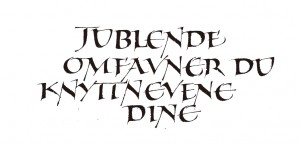 JUBLENDE
OMFAVNER DU
KNYTTNEVENE
DINE